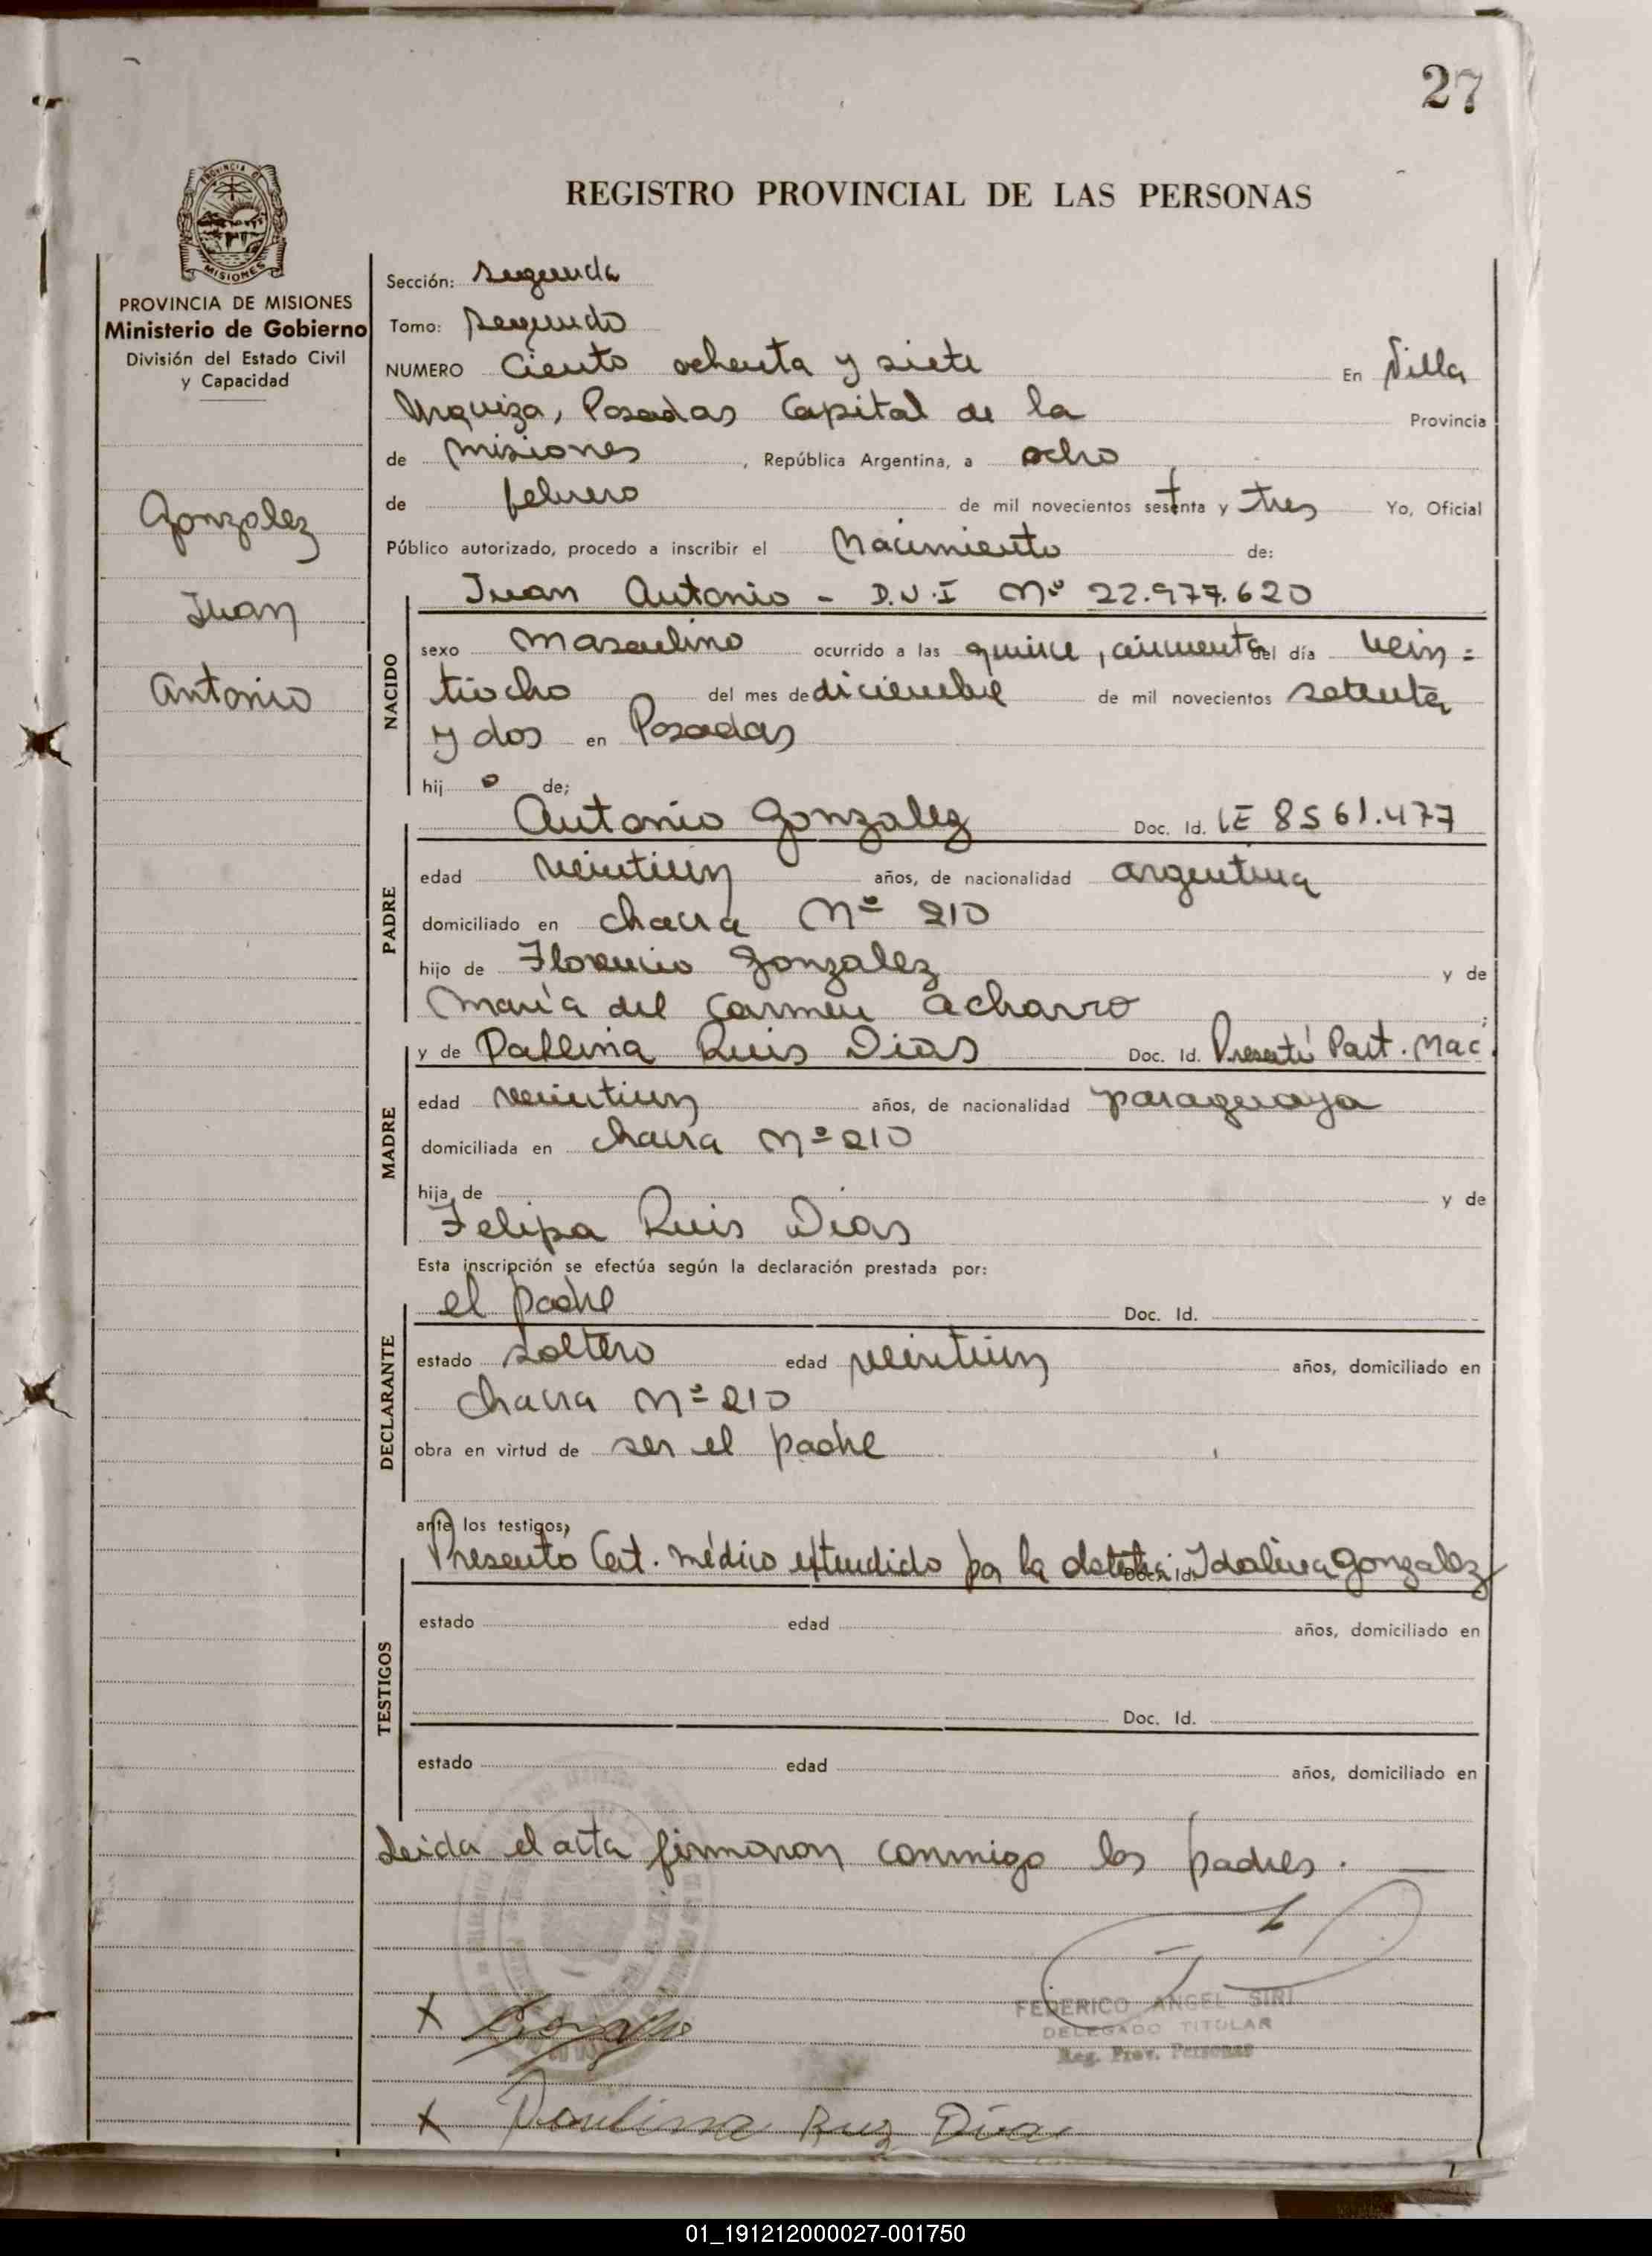 27
PROVINCIA DE
MISIONES
REGISTRO PROVINCIAL DE LAS PERSONAS
PROVINCIA DE MISIONES
Ministerio de Gobierno
División del Estado Civil
y Capacidad
Gonzalez
Juan
Antonio
Sección: segunda
Tomo: segundo
NUMERO Ciento ochenta y siete En Villa
Urquiza, Posadas Capital de la Provincia
de misiones, República Argentina, a ocho
de febrero de mil novecientos setenta y tres Yo, Oficial
Público autorizado, procedo a inscribir el Nacimiento de:
NACIDO
Juan Antonio - D.N.I Nº 22.977.620
sexo masculino ocurrido a las quince, cincuenta del día vein=
tiocho del mes de diciembre de mil novecientos setenta
y dos en Posadas
hijo de;
PADRE
Antonio Gonzalez Doc. Id. LE 8561.477
edad veintiun años, de nacionalidad argentina
domiciliado en chacra Nº 210
hijo de Florencio Gonzalez y de
María del Carmen Acharro;
MADRE
y de Ruis Dias Doc. Id. Presentó Part. Nac.
edad veintiun años, de nacionalidad paraguaya
domiciliada en chacra Nº 210
hija de y de
Felipa Ruis Dias
Esta inscripción se efectúa según la declaración prestada por:
DECLARANTE
el padre Doc. Id.
estado soltero edad veintiun años, domiciliado en
chacra Nº 210
obra en virtud de ser el padre
ante los testigos,
TESTIGOS
Presento Cert. médico extendido por la Doc. Id. Idalina Gonzalez
estado edad años, domiciliado en
Doc. Id.
estado edad años, domiciliado en
Leida el acta firmaron conmigo los padres.
FEDERICO ANGEL SIRI
DELEGADO TITULAR
Reg. Prov. Personas
X
X Paulina Ruz Dia
01_191212000027-001750